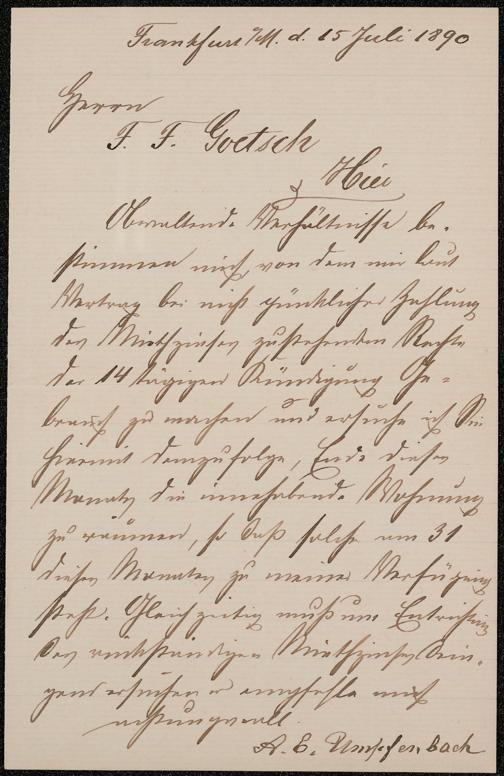 Frankfurt a/M. d. 15 Juli 1890
Herrn
F. F. Goetsch
Hier
Obwaltende Verhältnisse be-
stimmen mich, von dem mir laut
Vertrag bei nicht pünktlicher Zahlung
des Miethzinses zustehenden Rechte
der 14 tägigen Kündigung Ge-
brauch zu machen und ersuche ich Sie
hiermit demzufolge, Ende dieses
Monats die innehabende Wohnung
zu räumen, so daß solche am 31
dieses Monates zu meiner Verfügung
steht. Gleichzeitig muß um Entrichtung
des rückständigen Miethzinses drin-
gend ersuchen u empfehle mich
achtungsvoll
A. E. Umpfenbach